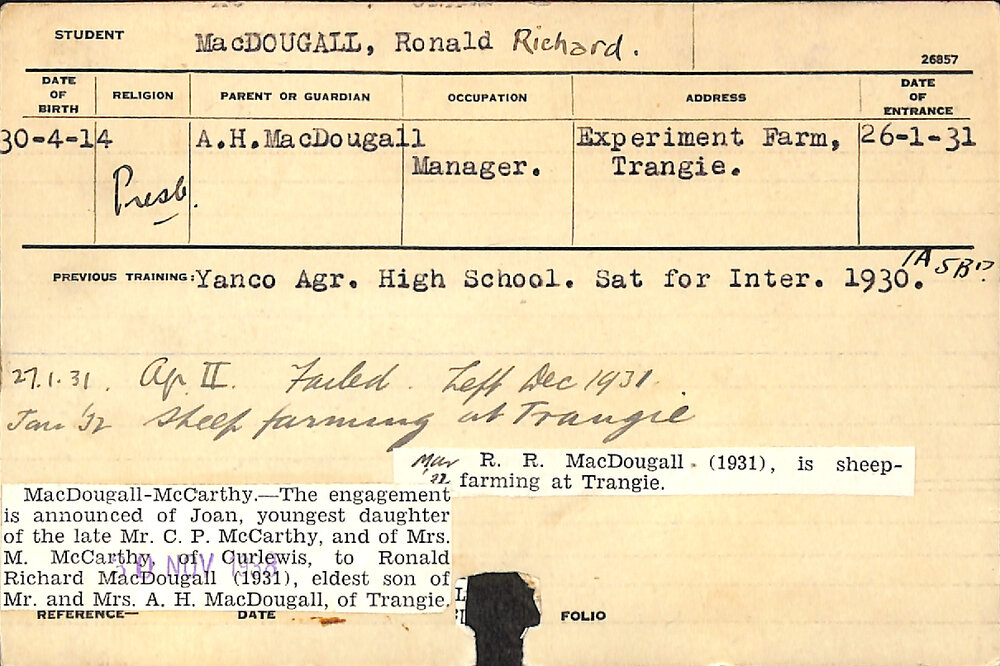 STUDENT MacDOUGALL, Ronald Richard.
26857
DATE OF BIRTH RELIGION PARENT OR GUARDIAN OCCUPATION ADDRESS DATE OF ENTRANCE
30-4-14 Presb. A.H.MacDougall Manager. Experiment Farm, Trangie. 26-1-31
PREVIOUS TRAINING: Yanco Agr. High School. Sat for Inter. 1930. 1A 5B's
27.1.31. Ag. II. Failed. Left Dec 1931.
Jan '32 Sheep farming at Trangie
Mar R. R. MacDougall (1931), is sheep-
farming at Trangie.
MacDougall-McCarthy.—The engagement
is announced of Joan, youngest daughter
of the late Mr. C. P. McCarthy, and of Mrs.
M. McCarthy, of Curlewis, to Ronald
30 NOV 1938
Richard MacDougall (1931), eldest son of
Mr. and Mrs. A. H. MacDougall, of Trangie.
REFERENCE— DATE FOLIO